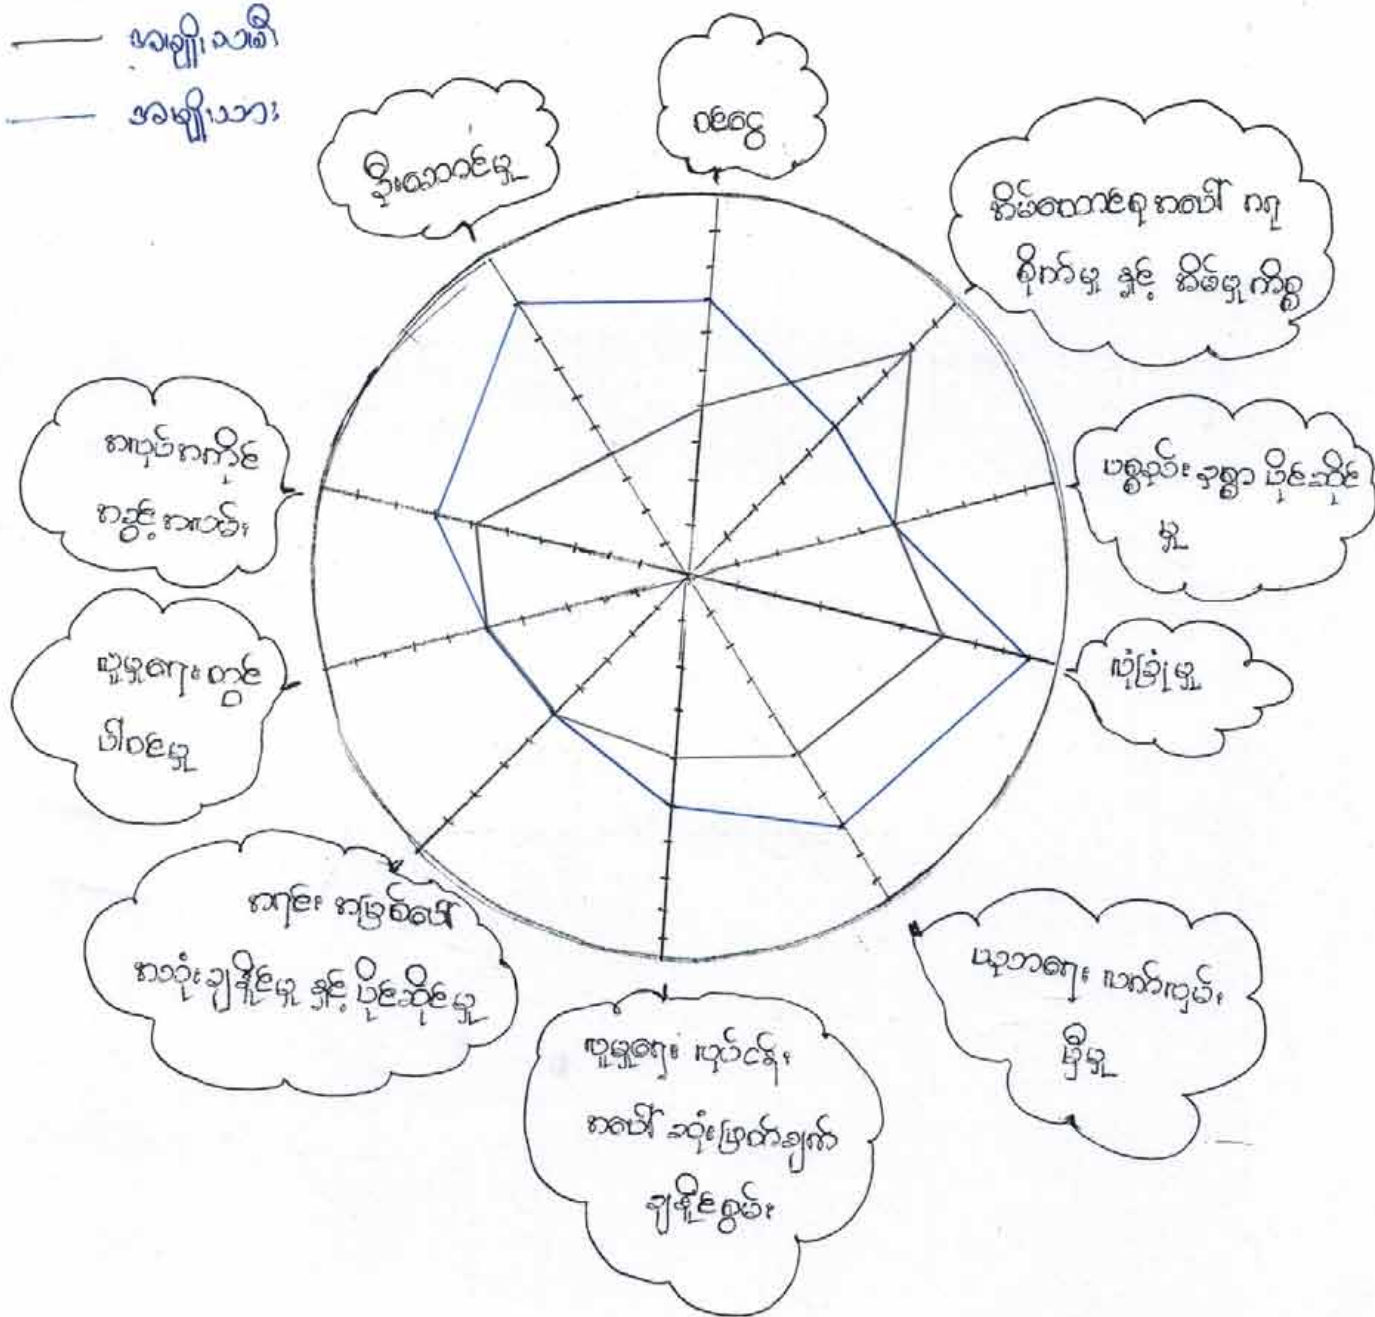 အမျိုးသမီး
အမျိုးသား
ဝင်ငွေ
ဦးဆောင်မှု
အိမ်ထောင်ရေးအပေါ် ဂရု
စိုက်မှု နှင့် အိမ်မှုကိစ္စ
ပစ္စည်း ဥစ္စာ ပိုင်ဆိုင်
မှု
လုံခြုံမှု
ပညာရေး လက်လှမ်း
မှီမှု
လူမှုရေး လုပ်ငန်း
အပေါ် ဆုံးဖြတ်ချက်
ချနိုင်စွမ်း
အရင်း အမြစ်ပေါ်
အသုံးချနိုင်မှု နှင့် ပိုင်ဆိုင်မှု
လူမှုရေးတွင်
ပါဝင်မှု
အလုပ်အကိုင်
အခွင့်အလမ်း